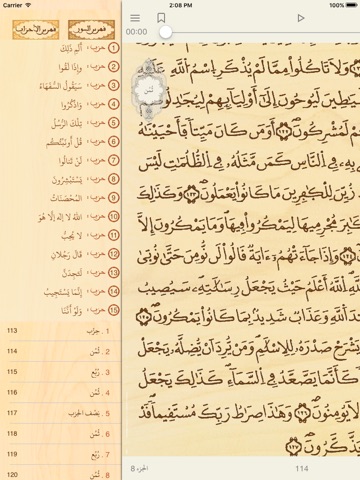 Carrier 2:08 PM 100%
00:00
فهرس السور فهرس الأحزاب
1 حزب: أَلَم ذَّلِكَ
2 حزب: وَإِذَا لَقُوا
3 حزب: سَيَقُولُ السُّفَهَاءُ
4 حزب: وَاذْكُرُوا
5 حزب: تِلْكَ الرُّسُلُ
6 حزب: قُلْ أَونَبِّئُكُم
7 حزب: لَن تَنَالُوا
8 حزب: يَسْتَبْشِرُونَ
9 حزب: المُحْصَنَاتُ
10 حزب: اللهُ لَا إِلَهَ إِلَّا هُوَ
11 حزب: لَا يُحِبُّ
12 حزب: قَالَ رَجُلَانِ
13 حزب: لَتَجِدَنَّ
14 حزب: إِنَّمَا يَسْتَجِيبُ
15 حزب: وَلَوْ أَنَّنَا
113 1 . حزاب
114 2 . ثُمُن
115 3 . رُبُع
116 4 . ثُمُن
117 5 . نِصْف الحزب
118 6 . ثُمُن
119 7 . رُبُع
120 8 . ثُمُن
ثمن
وَلَا تَاكُلُواْ مِمَّا لَمْ يُذْكَرِ اِسْمُ اللَّهِ
لَيُوحُونَ إِلَىٰ أَوْلِيَآئِهِمْ
لَمُشْرِكُونَ أَوَمَن كَانَ مَيِّتًا فَأَحْيَيْنَٰهُ
بِهِۦ فِي النَّاسِ كَمَن مَّثَلُهُۥ فِي الظُّلُمَٰتِ لَيْسَ
زُيِّنَ لِلْكَٰفِرِينَ مَا كَانُواْ يَعْمَلُونَ وَكَذَٰلِكَ
مُجْرِمِيهَا لِيَمْكُرُواْ فِيهَا وَمَا يَمْكُرُونَ إِلَّا
وَإِذَا جَآءَتْهُمُۥٓ ءَايَةٌ قَالُواْ لَن نُّومِنَ حَتَّىٰ نُوتَىٰ
اللَّهُ أَعْلَمُ حَيْثُ يَجْعَلُ رِسَٰلَٰتِهِۦ سَيُصِيبُ
اللَّهِ وَعَذَابٌ شَدِيدٌۢ بِمَا كَانُواْ يَمْكُرُونَ
يَشْرَحْ صَدْرَهُۥ لِلْإِسْلَٰمِ وَمَنْ يُّرِدَ اَنْ يُّضِلَّهُۥ يَجْعَلْ
كَأَنَّمَا يَصَّعَّدُ فِي السَّمَآءِ كَذَٰلِكَ يَجْعَلُ
لَا يُومِنُونَ وَهَٰذَا صِرَٰطُ رَبِّكَ مُسْتَقِيمًا قَدْ
يَذَّكَّرُونَ
الجزء 8 114